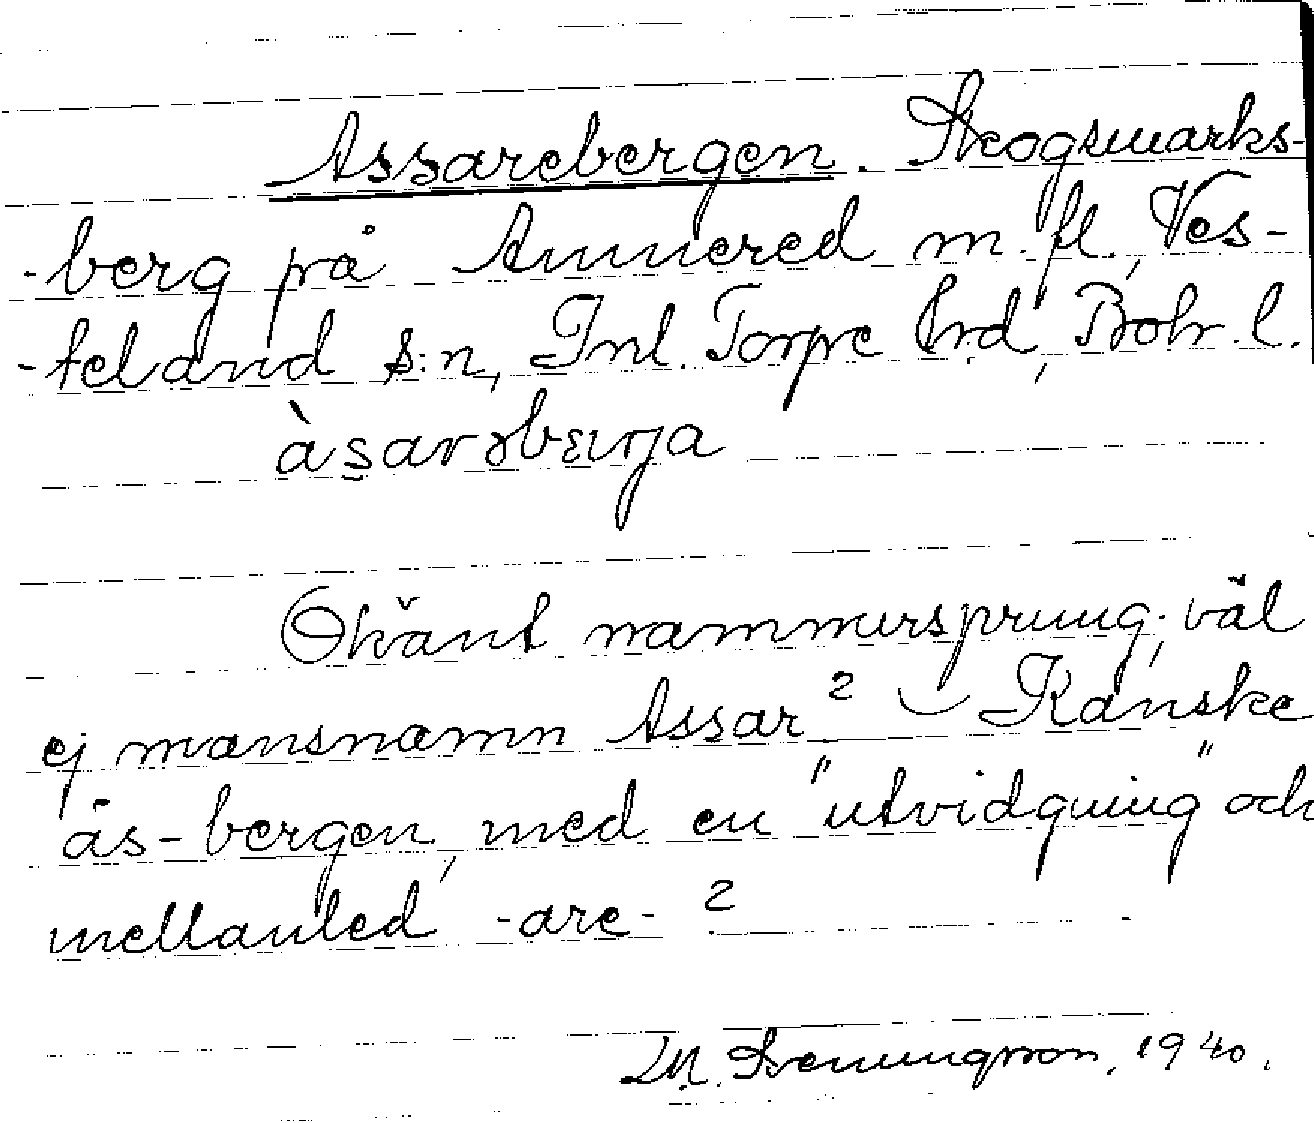 Assarebergen. Skogsmarks-
-berg på Annered m. fl., Ves-
-teland s:n, Inl. Torpe hrd, Boh. l.
àsarəbærja
Okänt namnursprung; väl
ej mansnamn Assar? – Kanske
ås-bergen, med en "utvidgning" och
mellanled -are- ?
M. Svenungsson, 1940.